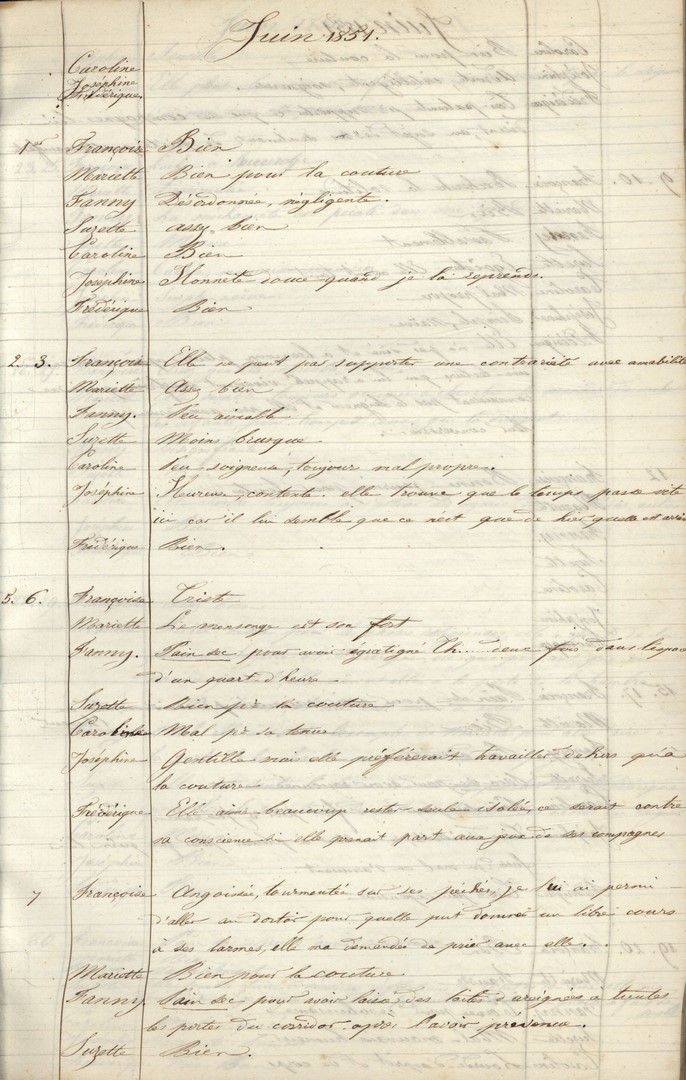 Juin 1851.
Caroline
Joséphine
Frédérique
1er Françoise Bien
Mariette Bien pour la couture
Fanny Désordonnée, négligente.
Suzette assez bien
Caroline Bien
Joséphine Honnête douce quand je la reprends.
Frédérique Bien
2. 3. Françoise Elle ne peut pas supporter une contrariété avec amabilité
Mariette Assez bien
Fanny. Peu aimable
Suzette Moins brusque
Caroline Peu soigneuse, toujours mal propre.
Joséphine Heureuse, contente. elle trouve que le temps passe vite
ici car il lui semble que ce n'est que de hier qu'elle est
Frédérique Bien.
5. 6. Françoise Triste
Mariette Le mensonge est son fort
Fanny. Pain sec pour avoir égratigné Th.... deux fois dans l'espace
d'un quart d'heure
Suzette Bien pr la couture
Caroline Mal pr sa tenue
Joséphine Gentille mais elle préférerait travailler dehors qu'à
la couture
Frédérique Elle aime beaucoup rester seule isolée, ce serait contre
sa conscience si elle prenait part aux jeux de ses compagnes
7 Françoise Angoissée, tourmentée sur ses péchés, je lui ai permi
d'aller au dortoir pour quelle put donner un libre cours
à ses larmes, elle ma demandée de prier avec elle.
Mariette Bien pour la couture
Fanny Pain sec pour avoir laissé des toiles d'areignées à toutes
les portes du corridor après l'avoir prévenue.
Suzette Bien.